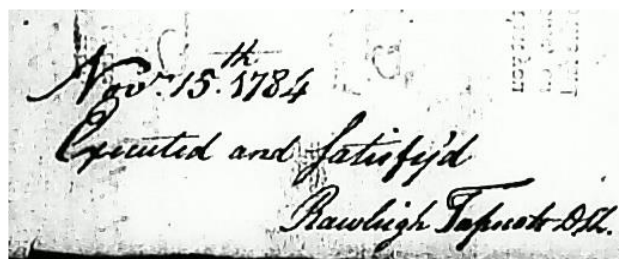 Novr. 15th. 1784
Executed and satisfy'd
Rawleigh Tapscott D Sh.